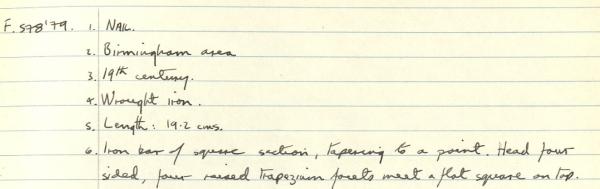 F. S78'79. 1. NAIL.
2. Birmingham area
3. 19th century.
4. Wrought iron.
5. Length: 19.2 cms.
6. Iron bar of square section, tapering to a point. Head four
sided, four raised trapezium facets meet a flat square on top.